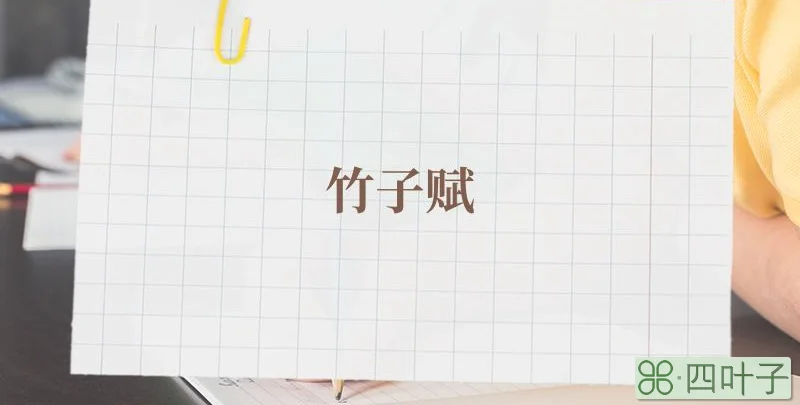 竹子赋
四叶子